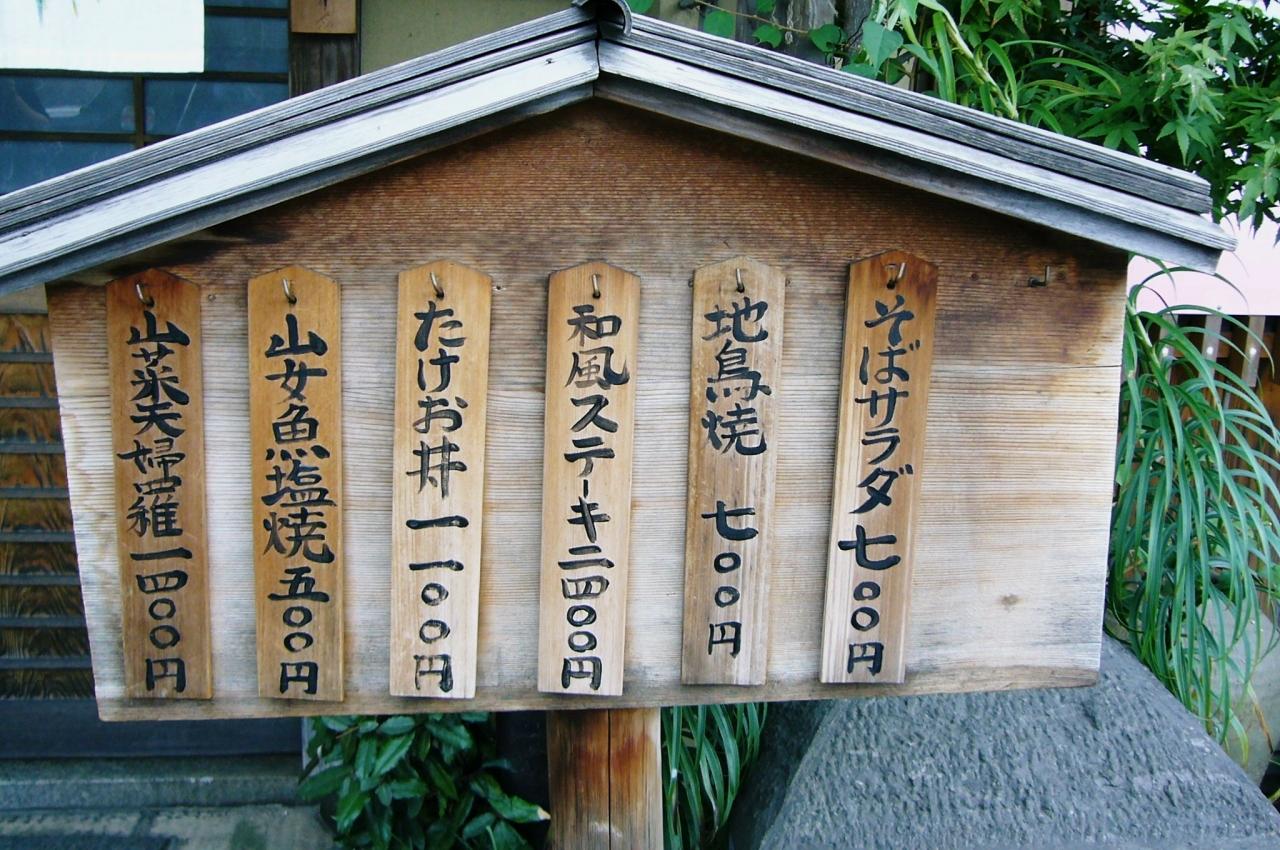 そばサラダ七〇〇円
地鳥焼 七〇〇円
和風ステーキ二四〇〇円
たけお丼一一〇〇円
山女魚塩焼五〇〇円
山菜天婦羅一四〇〇円